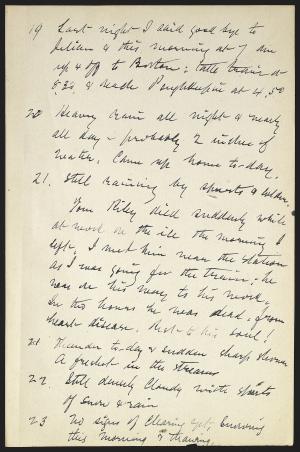 19 Last night I said good bye to
Julian & this morning at 7 am
up & off to Boston; take train at
8.30 & reach Poughkeepsie at 4.50
20 Heavy rain all night & nearly
all day - probably 2 inches of
water. Came up home to-day.
21. Still raining by spurts & colder.
Tom Riley died suddenly while
at work on the ice the morning I
left. I met him near the station
as I was going for the train; he
was on his way to his work.
In two hours he was dead. from
heart disease. Rest to his soul!
21 Thunder to-day & sudden sharp shower
A freshet in the streams
22. Still densely cloudy with spurts
of snow & rain
23 No signs of clearing yet; snowing
this morning & thawing